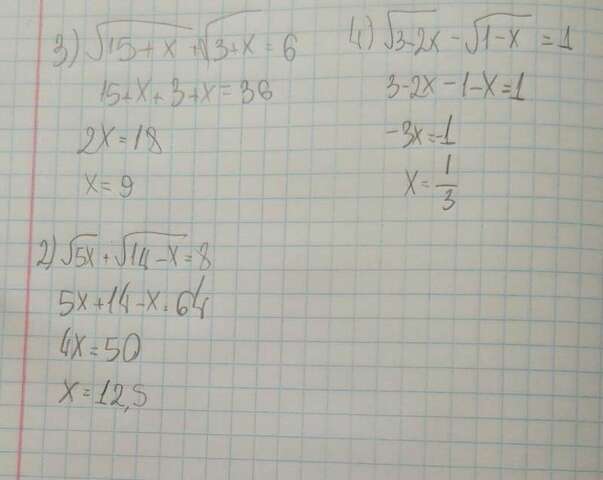 3) √15+x + √3+x = 6
15+x+3+x=36
2x=18
x=9
4) √3-2x - √1-x = 1
3-2x-1-x=1
-3x=-1
x=1/3
2) √5x + √14-x = 8
5x+14-x=64
4x=50
x=12,5